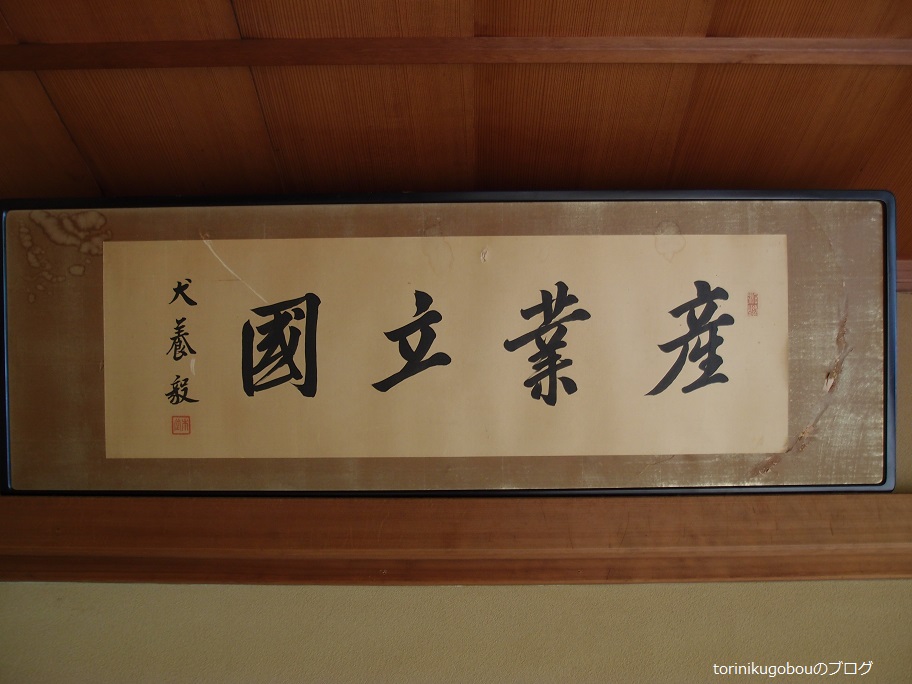 產業立國
犬養毅
torinikugobouのブログ